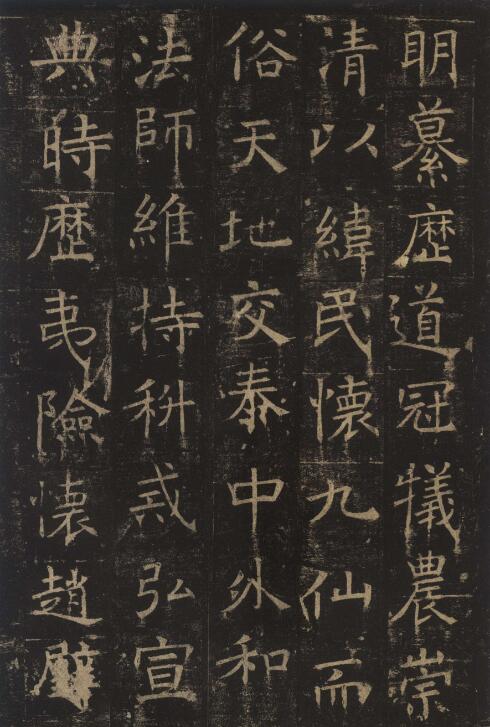 明纂歴道冠犧農崇
清以緯民懷九仙而
俗天地交泰中外和
法師維持科戒弘宣
典時歴夷險懷趙璧